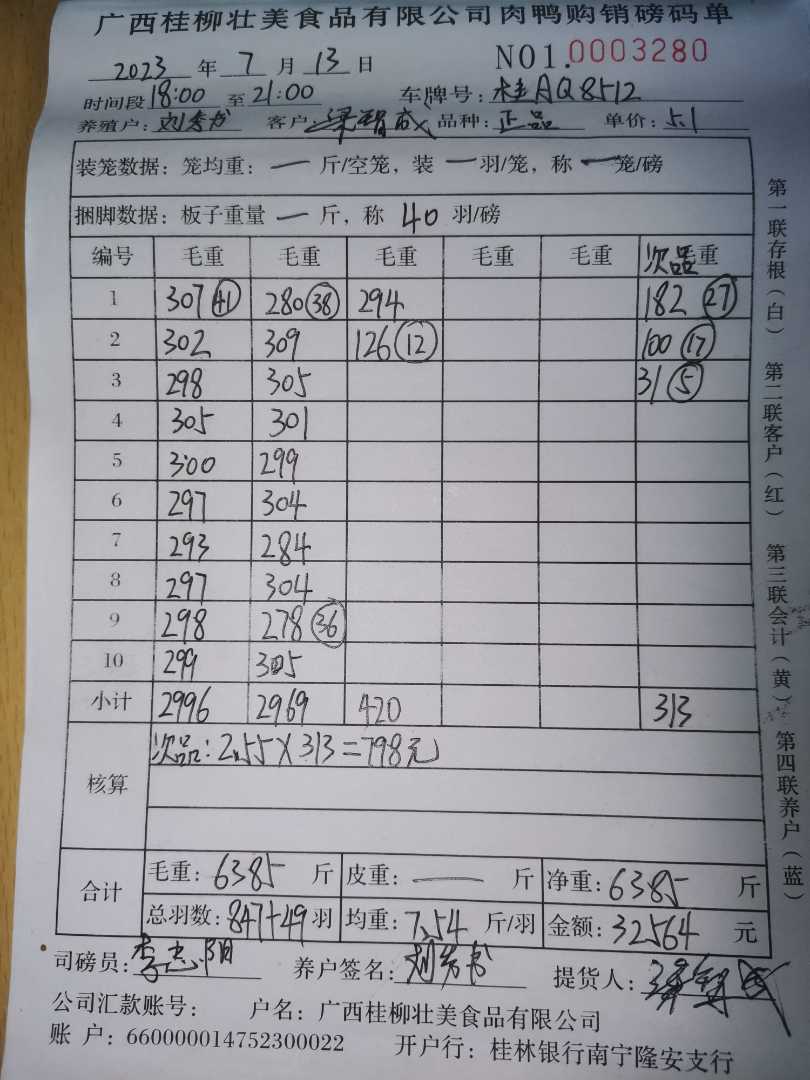 广西桂柳壮美食品有限公司肉鸭购销磅码单
2023 年 7 月 13 日 NO1.0003280
时间段 18:00 至 21:00 车牌号: 桂AQ8512
养殖户: 刘 书 客户: 梁 成 品种: 正品 单价: 5.1
装笼数据: 笼均重: 一 斤/空笼, 装 一 羽/笼, 称 一 笼/磅
捆脚数据: 板子重量 一 斤, 称 40 羽/磅
编号 毛重 毛重 毛重 毛重 毛重 次品 毛重
1 307 (41) 280 (38) 294 182 (27)
2 302 309 126 (12) 100 (17)
3 298 305 31 (5)
4 305 301
5 300 299
6 297 304
7 293 284
8 297 304
9 298 278 (36)
10 299 305
小计 2996 2969 420 313
核算 次品: 2.55×313=798元
合计 毛重: 6385 斤 皮重: — 斤 净重: 6385 斤
总羽数: 847+49 羽 均重: 7.54 斤/羽 金额: 32564 元
司磅员: 李志阳 养户签名: 刘 书 提货人: 梁 成
公司汇款账号: 户名: 广西桂柳壮美食品有限公司
账 户: 660000014752300022 开户行: 桂林银行南宁隆安支行
第一联存根(白) 第二联客户(红) 第三联会计(黄) 第四联养户(蓝)